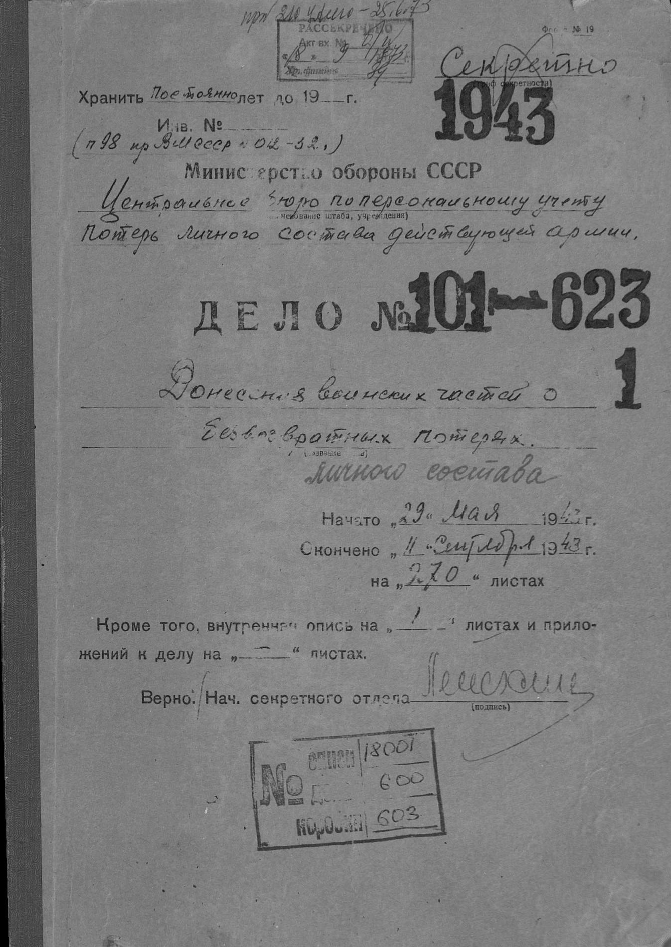 РАССЕКРЕЧЕНО
Акт вх. №
№ 19
Секретно
Хранить Постоянно лет до 19 г.
1943
Инв. №
Министерство обороны СССР
Центральное бюро по персональному учету
(наименование штаба, учреждения)
потерь личного состава действующей армии.
ДЕЛО № 101—623
1
Донесения воинских частей о
безвозвратных потерях.
личного состава
Начато „29" Мая 1943 г.
Скончено „11" Сентября 1943 г.
на „270" листах
Кроме того, внутренняя опись на „1" листах и прило-
жений к делу на „—" листах.
Верно: Нач. секретного отдела
(подпись)
№ описи 18001
дела 600
коробки 603